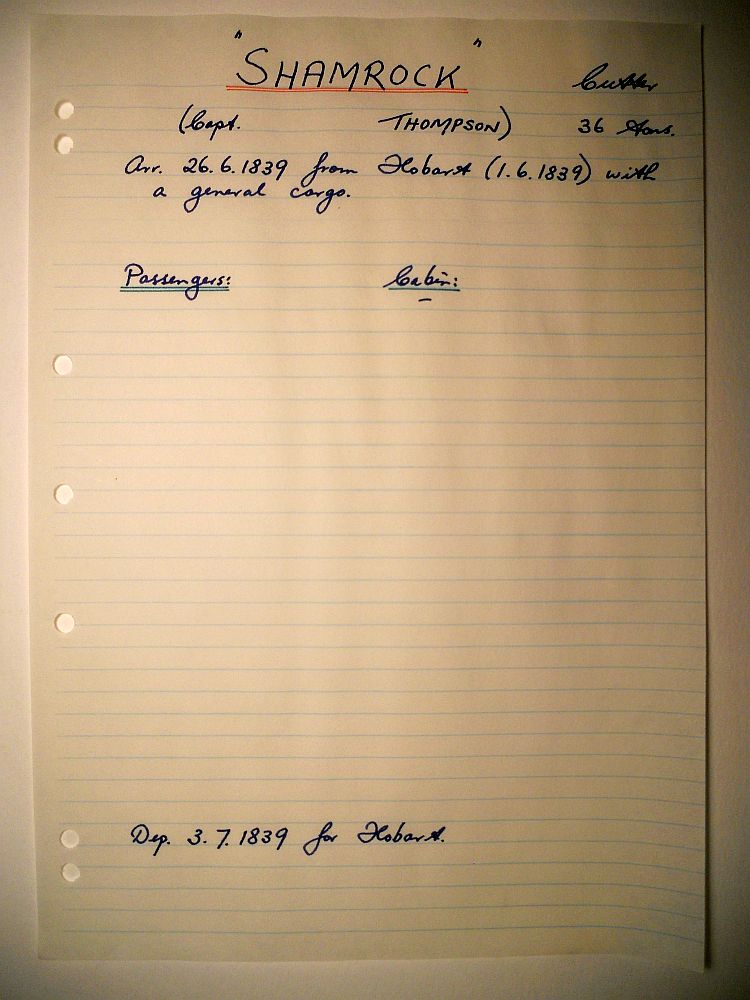 "SHAMROCK" Cutter
(Capt. THOMPSON) 36 tons.
Arr. 26.6.1839 from Hobart (1.6.1839) with
a general cargo.
Passengers: Cabin:
–
Dep. 3.7.1839 for Hobart.